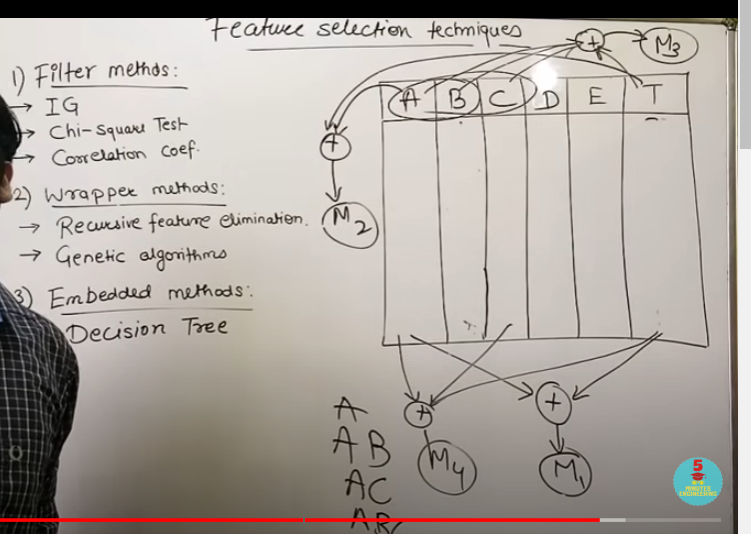 Feature selection techniques
1) Filter methds:
→ IG
→ Chi-Square Test
→ Correlation Coef.
2) Wrapper methods:
→ Recursive feature elimination.
→ Genetic algorithms
3) Embedded methods:
Decision Tree
+ M3
A B C D E T
+
M2
+ +
M4 M1
A
AB
AC
5
MINUTES
ENGINEERING